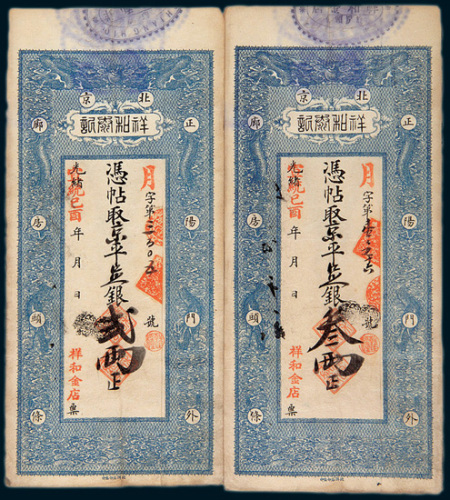 北京
正陽門外
廊房頭條
月字第 號
憑帖取京平足銀叁兩正
光緒
宣統己酉年 月 日
祥和金店票
北京
正陽門外
廊房頭條
月字第 號
憑帖取京平足銀貳兩正
光緒
宣統己酉年 月 日
祥和金店票